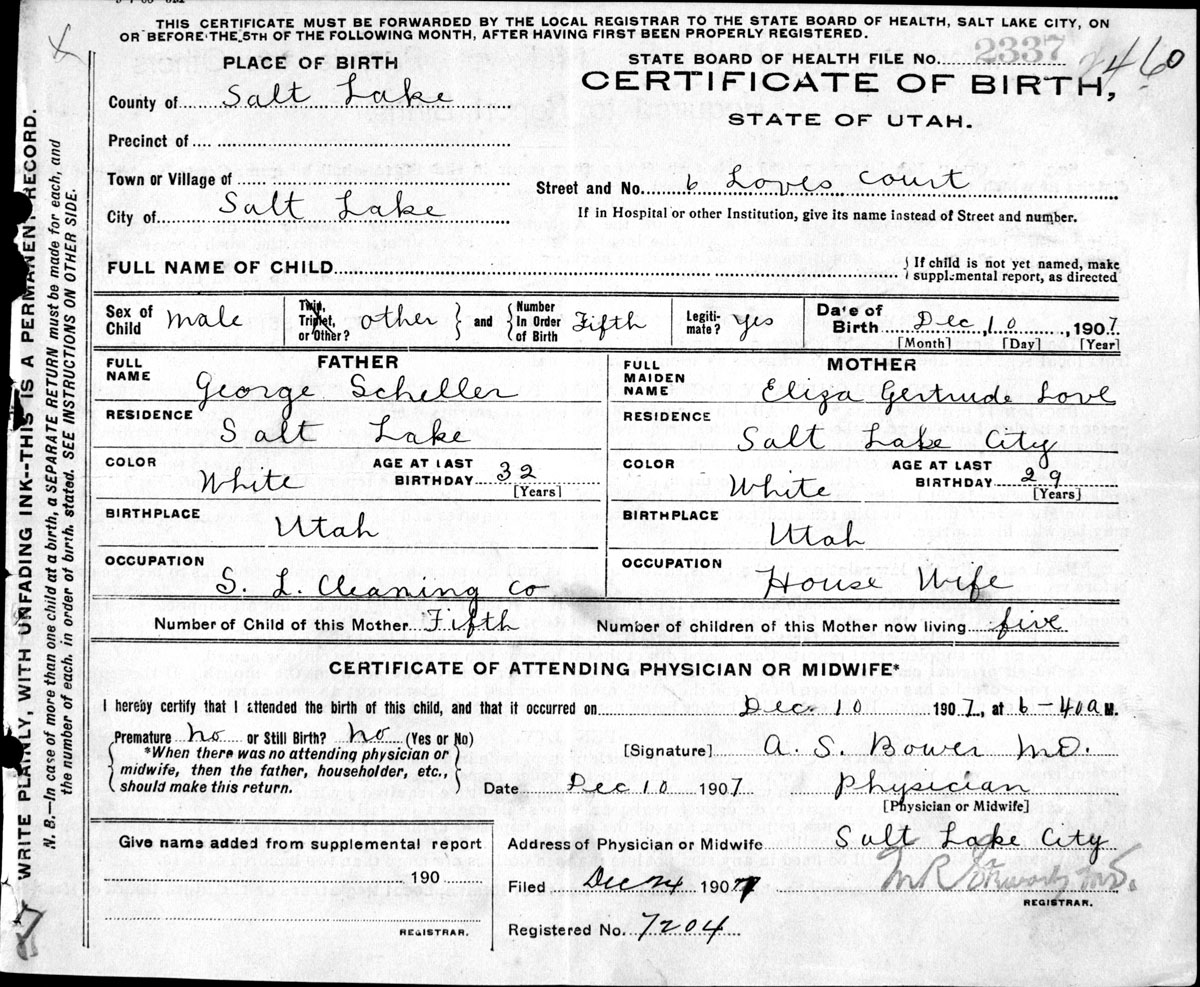 THIS CERTIFICATE MUST BE FORWARDED BY THE LOCAL REGISTRAR TO THE STATE BOARD OF HEALTH, SALT LAKE CITY, ON
OR BEFORE THE 5TH OF THE FOLLOWING MONTH, AFTER HAVING FIRST BEEN PROPERLY REGISTERED.
PLACE OF BIRTH
STATE BOARD OF HEALTH FILE NO. 2337
2460
County of Salt Lake
CERTIFICATE OF BIRTH,
STATE OF UTAH.
Precinct of
Town or Village of
Street and No. 6 Loves Court
City of Salt Lake
If in Hospital or other Institution, give its name instead of Street and number.
FULL NAME OF CHILD
If child is not yet named, make
supplemental report, as directed
Sex of Child male
Twin, Triplet, or Other? other
and
Number In Order of Birth Fifth
Legiti-mate? yes
Date of Birth Dec 10, 1907
[Month] [Day] [Year]
FATHER
FULL NAME George Scheller
RESIDENCE
Salt Lake
COLOR White
AGE AT LAST BIRTHDAY 32
[Years]
BIRTHPLACE
Utah
OCCUPATION
S. L. Cleaning Co
MOTHER
FULL MAIDEN NAME Eliza Gertrude Love
RESIDENCE
Salt Lake City
COLOR White
AGE AT LAST BIRTHDAY 29
[Years]
BIRTHPLACE
Utah
OCCUPATION
House Wife
Number of Child of this Mother Fifth
Number of children of this Mother now living five
CERTIFICATE OF ATTENDING PHYSICIAN OR MIDWIFE*
I hereby certify that I attended the birth of this child, and that it occurred on Dec. 10 1907, at 6-40 A M.
Premature no or Still Birth? no (Yes or No)
*When there was no attending physician or
midwife, then the father, householder, etc.,
should make this return.
[Signature] A. S. Bower M.D.
Date Dec 10 1907
Physician
[Physician or Midwife]
Give name added from supplemental report
190
REGISTRAR.
Address of Physician or Midwife Salt Lake City
Filed Dec 24 1907
REGISTRAR.
Registered No. 7204
WRITE PLAINLY, WITH UNFADING INK--THIS IS A PERMANENT RECORD.
N. B.—In case of more than one child at a birth, a SEPARATE RETURN must be made for each, and
the number of each, in order of birth, stated. SEE INSTRUCTIONS ON OTHER SIDE.